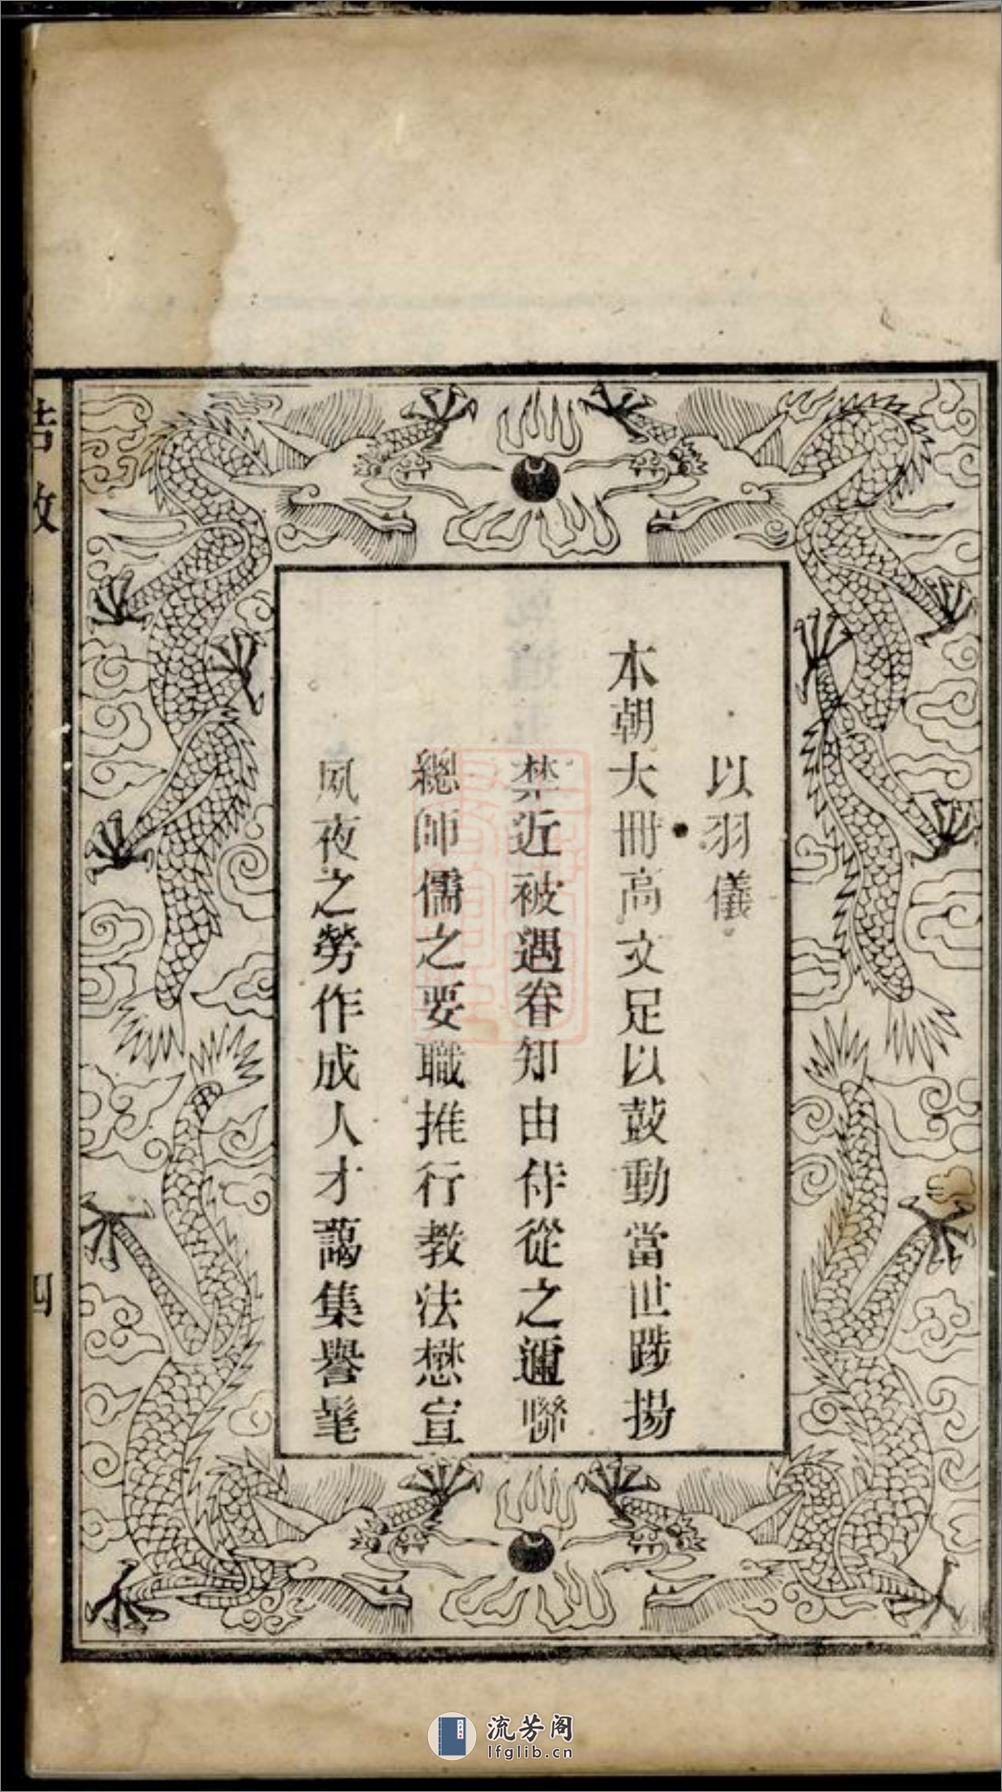 以羽儀
本朝大冊高文足以鼓動當世踐揚
禁近被遇眷知由侍從之邇聯
總師儒之要職推行教法懋宣
夙夜之勞作成人才藹集譽髦
誥敕
四
流芳阁
lfglib.cn